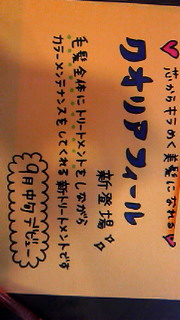 芯からキラめく美髪になれる
クオリアフィール
新登場
毛髪全体にトリートメントをしながら
カラーメンテナンスをしてくれる新トリートメントです
9月中旬デビュー